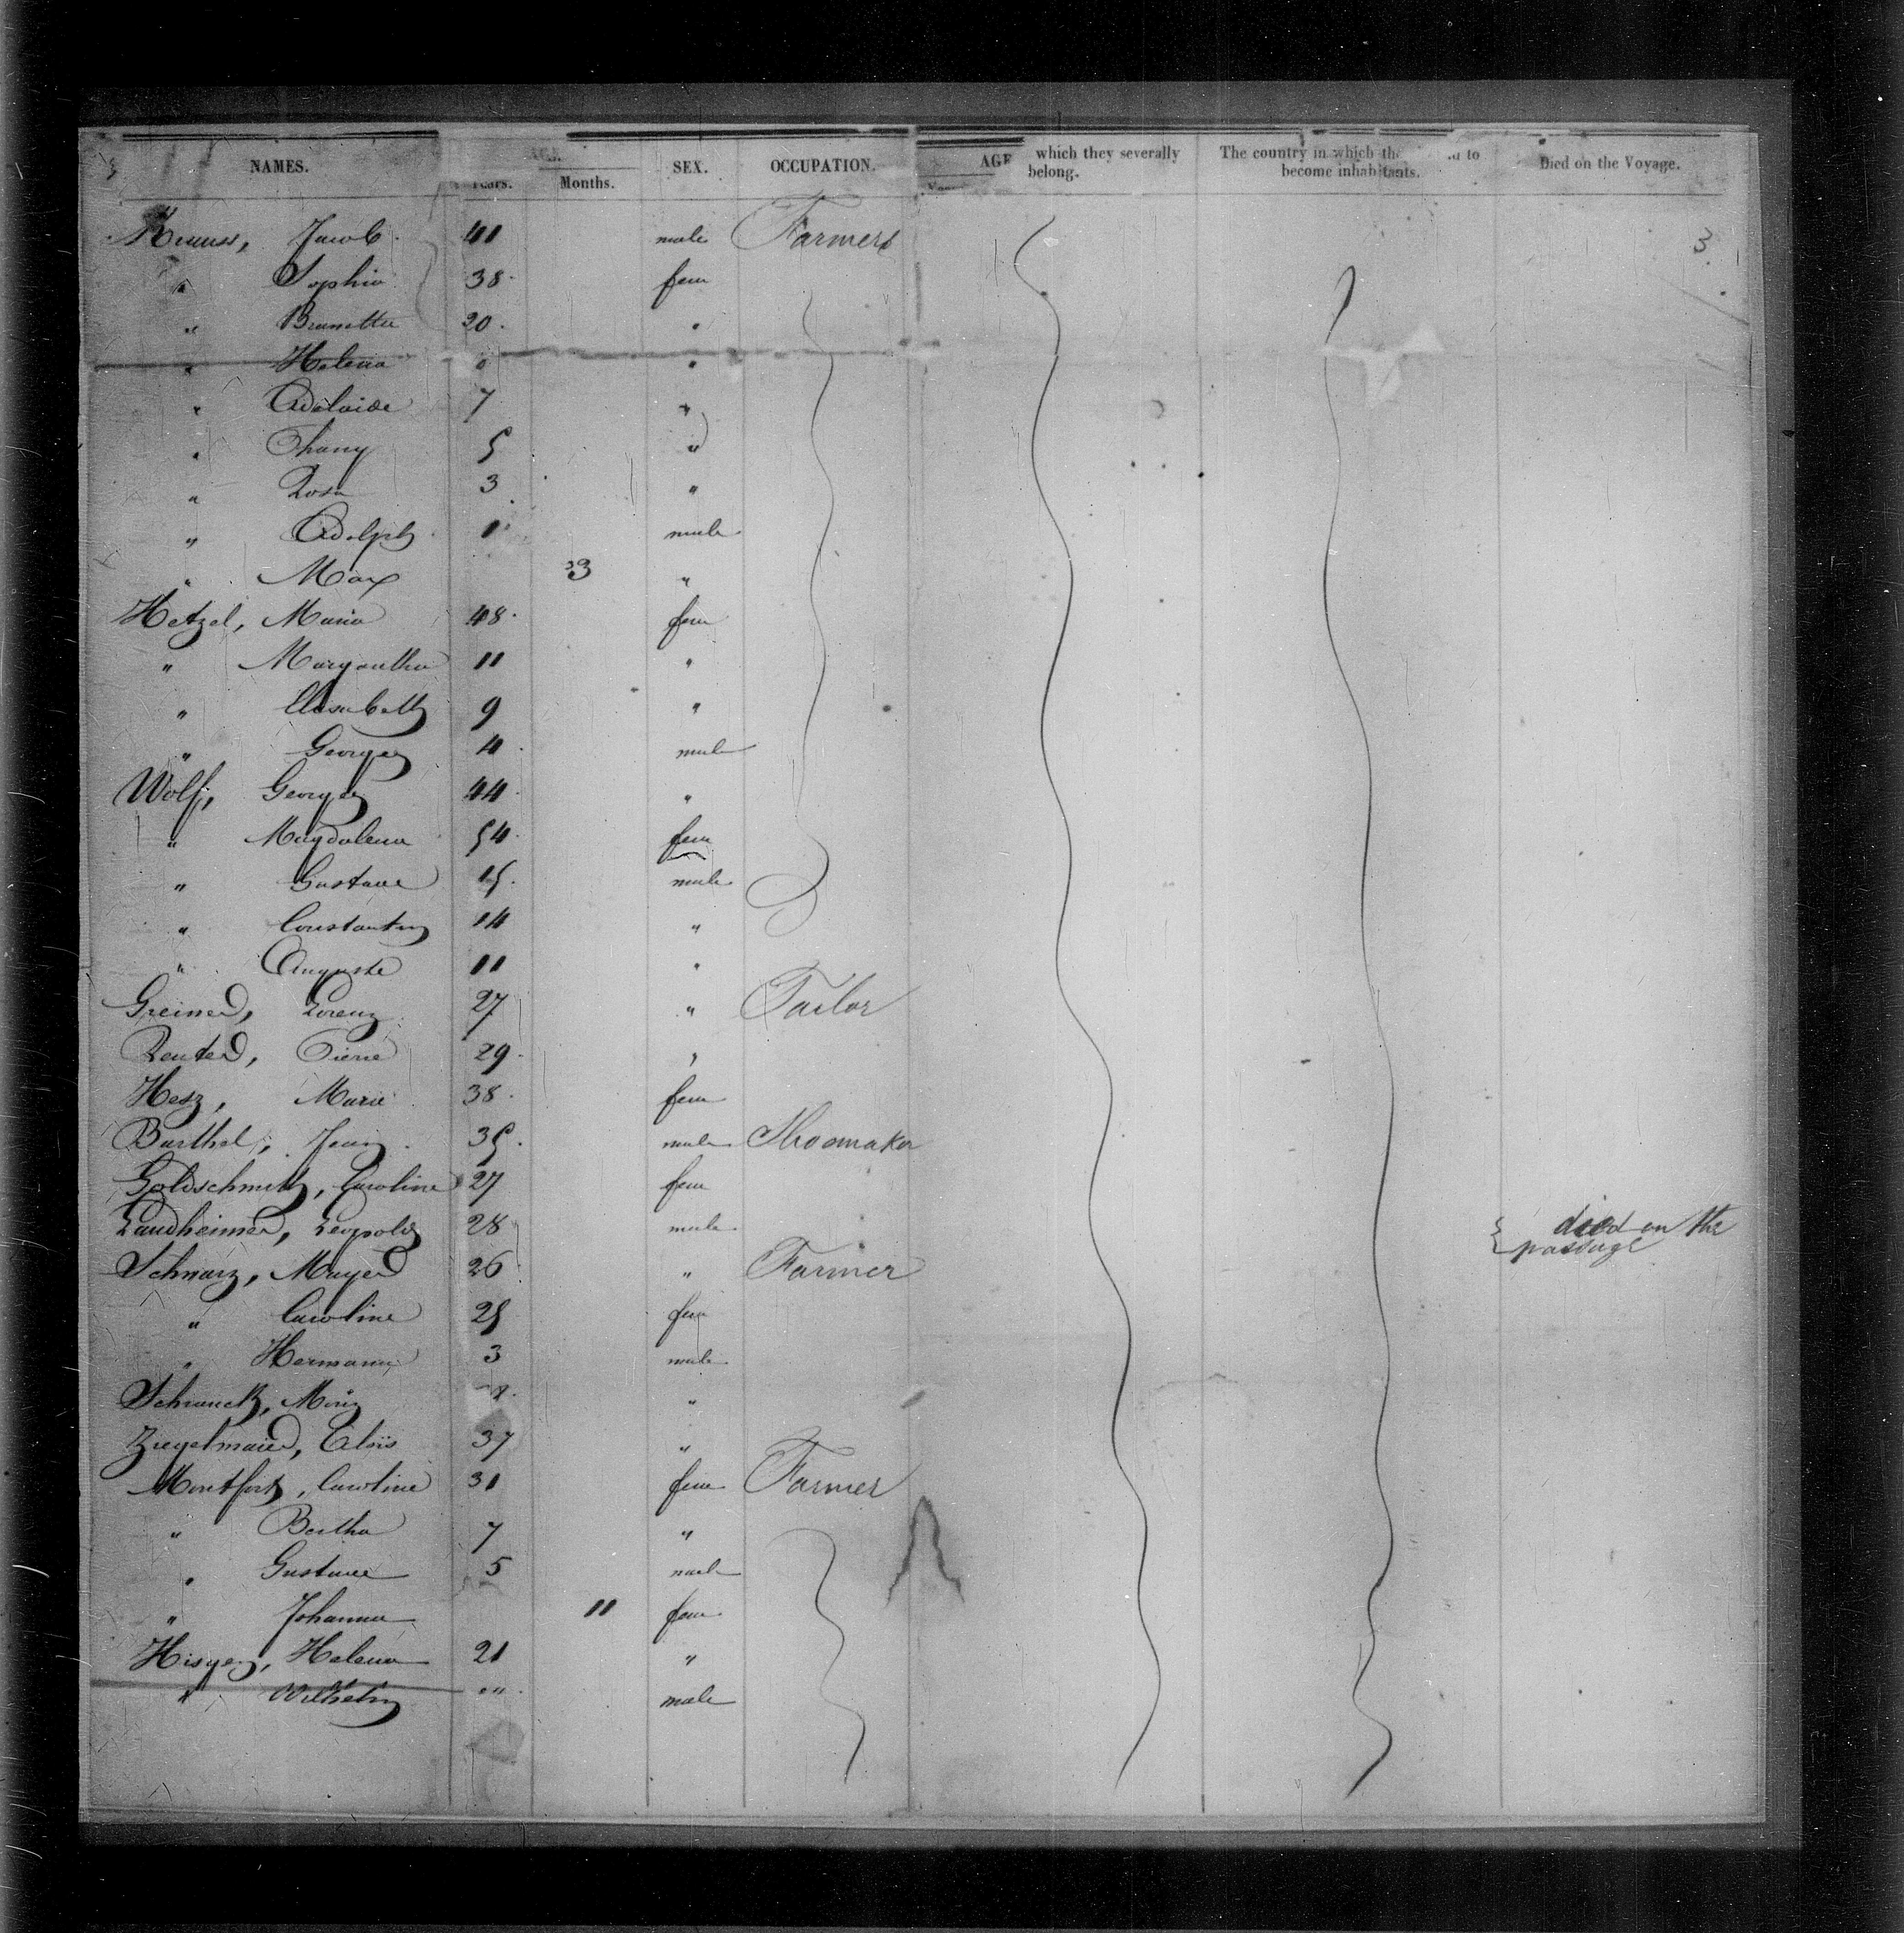 NAMES. AGE. Years. Months. SEX. OCCUPATION. AGE which they severally belong. The country in which to become inhabitants. Died on the Voyage.
3.
Krauss, Jacob 41 male Farmers
" Sophia 38 fem
" Brunetta 20 "
" Helena "
" Adelaide 7 "
" Fhany 5 "
" Rosa 3 "
" Adolph 1 male
" Max 3 "
Hetzel, Maria 48 fem
" Margaretha 11 "
" Elisabeth 9 "
" Georges 4 male
Wolf, Georges 44 "
" Magdalena 54 fem
" Gustave 15 male
" Constantin 14 "
" Auguste 11 "
Greiner, Lorenz 27 " Tailor
Reuter, Pierre 29 "
Hesz, Marie 38 fem
Barthel, Jean 35 male Shoemaker
Goldschmith, Caroline 27 fem
Landheimer, Leopold 28 male died on the
passage
Schwarz, Mayer 26 " Farmer
" Caroline 25 fem
" Hermann 3 male
Schranck, "
Ziegelmaier, Aloïs 37 "
Montfort, Caroline 31 fem Farmer
" Bertha 7 "
" Gustave 5 male
" Johanna 11 fem
Hisgen, Helena 21 "
" Wilhelm male